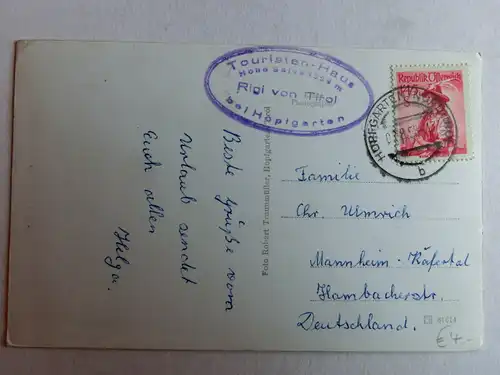 Touristen-Haus
Hohe Salve 1829 m
Rigi von Tirol
bei Hopfgarten
Republik Österreich
HOPFGARTEN
b
Beste Grüße vom
Urlaub sendet
Euch allen
Helga.
Foto Robert Traunmüller, Hopfgarten
Familie
Chr. Ulmrich
Mannheim - Käfertal
Hambacherstr.
Deutschland.
€ 4.-